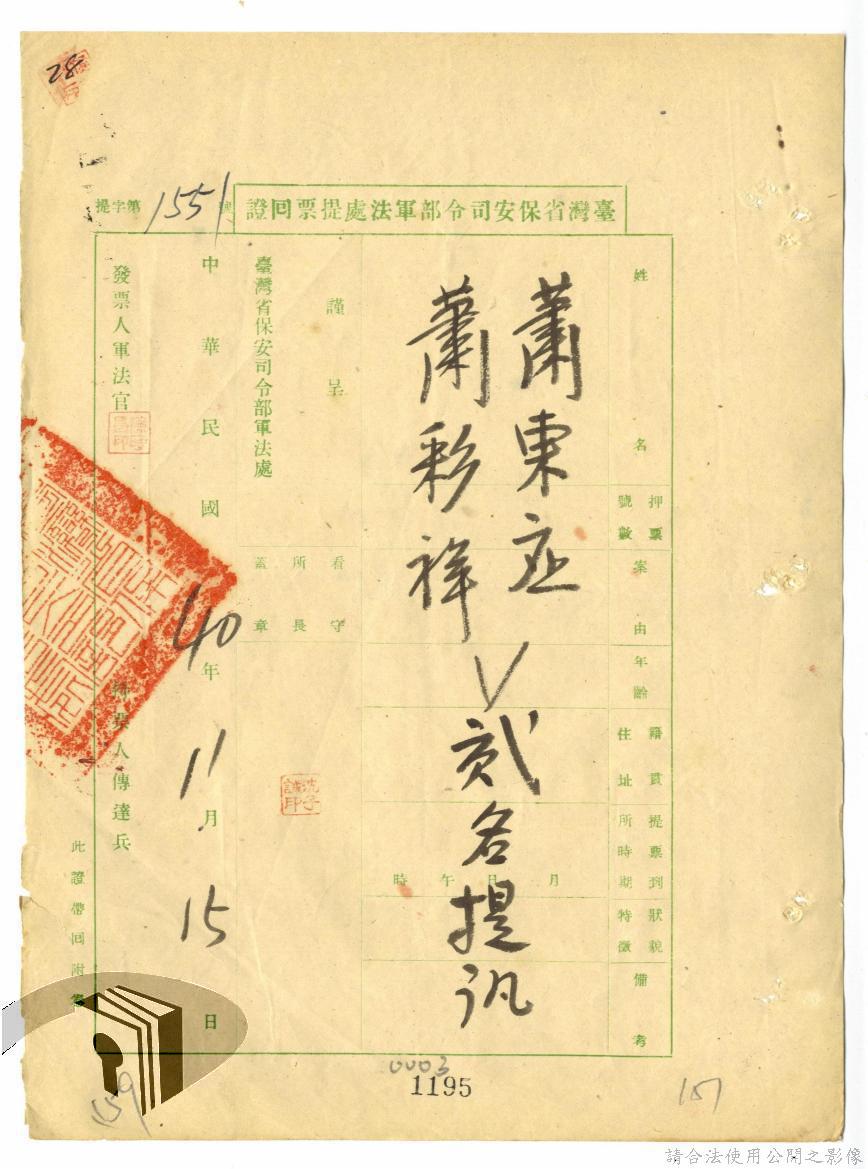 28
臺灣省保安司令部軍法處提票回證
提字第1551號
姓名
押票號數
案由
年齡
籍貫住址
提票到所時期
狀貌特徵
備考
蕭東
蕭彩祥
V
貳名提訊
月 日 午 時
謹呈
臺灣省保安司令部軍法處
看守所長蓋章
中華民國40年11月15日
發票人軍法官
人傳達兵
此證帶回附
0003
1195
159
151
請合法使用公開之影像